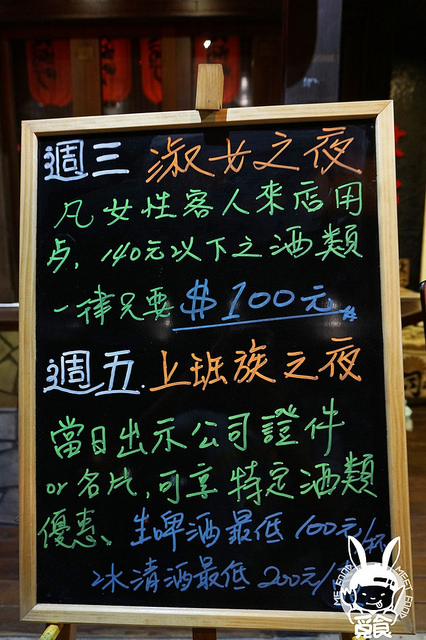 週三 淑女之夜
凡女性客人來店用
点，140元以下之酒類
一律只要 $100元
週五．上班族之夜
當日出示公司證件
or 名片，可享特定酒類
優惠、生啤酒最低 100元/杯
冰清酒最低 200元/
ME FOOD MEET FOOD
覓食